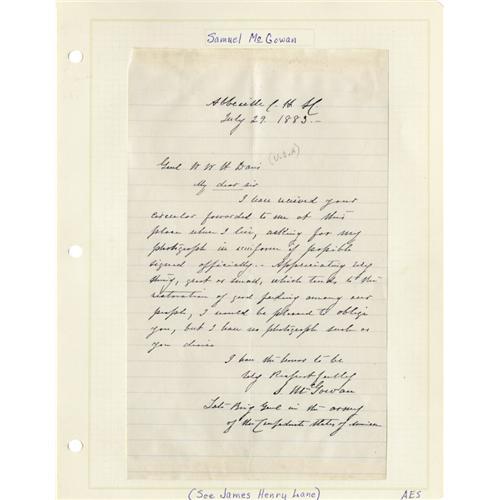 Samuel McGowan
Abbeville C. H. SC.
July 29 1883.-
(U.S.A)
Genl W W H Davis
My dear sir
I have received your
circular forwarded to me at this
place where I live, asking for my
photograph in uniform if possible
signed officially.- Appreciating every
thing, great or small, which tends to the
restoration of good feeling among our
people, I would be pleased to oblige
you, but I have no photograph such as
you desire
I have the honor to be
Very Respectfully
S. McGowan
Late Brig Genl in the army
of the Confederate States of America
(See James Henry Lane)
AES